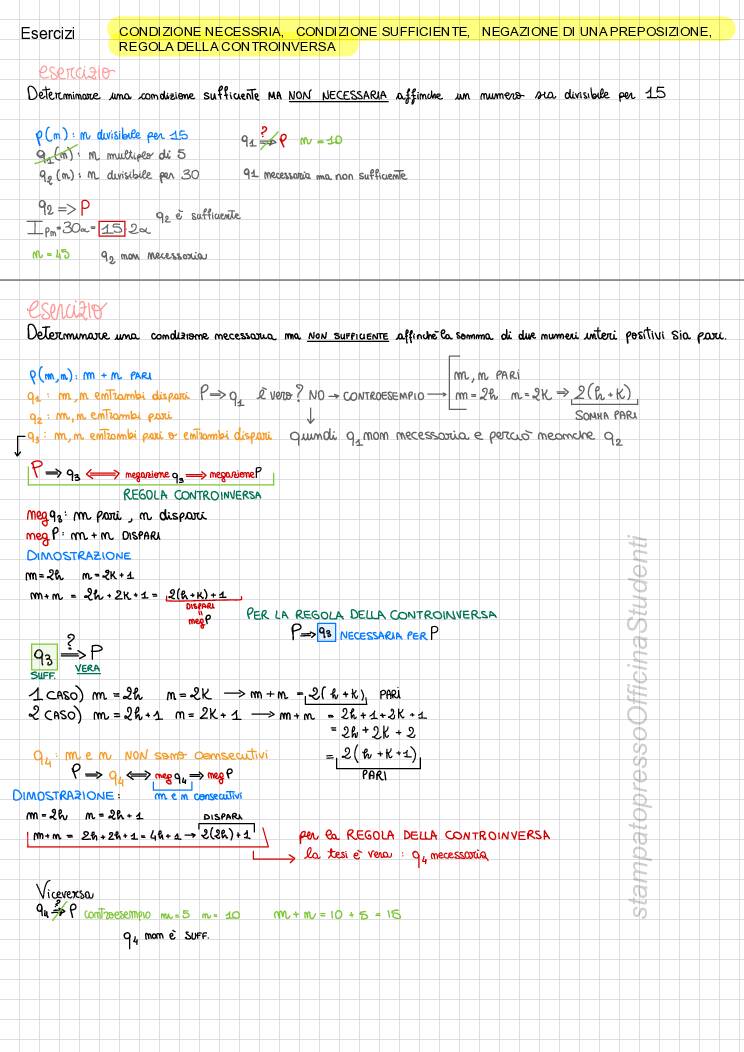 Esercizi
CONDIZIONE NECESSRIA, CONDIZIONE SUFFICIENTE, NEGAZIONE DI UNA PREPOSIZIONE,
REGOLA DELLA CONTROINVERSA
esercizio
Determinare una condizione sufficiente MA NON NECESSARIA affinche un numero sia divisibile per 15
p(n): n divisibile per 15
q1 ⇏ P ? n = 10
q1(n): n multiplo di 5
q2(n): n divisibile per 30
q1 necessaria ma non sufficiente
q2 => P
q2 è sufficiente
n = 45 q2 non necessaria
esercizio
Determinare una condizione necessaria ma NON SUFFICIENTE affinchè la somma di due numeri interi positivi sia pari.
p(m,n): m + n PARI
m, n PARI
q1: m, n entrambi dispari P ⇒ q1 è vero? NO → CONTROESEMPIO → m = 2h n = 2K ⇒ 2(h+K)
SOMMA PARI
q2: m, n entrambi pari
q3: m, n entrambi pari o entrambi dispari quindi q1 non necessaria e perciò neanche q2
P ⇒ q3 ⟺ negazione q3 ⇒ negazione P
REGOLA CONTROINVERSA
neg q3: m pari, n dispari
neg P: m + n DISPARI
DIMOSTRAZIONE
m = 2h n = 2K + 1
m + n = 2h + 2K + 1 = 2(h+K) + 1
DISPARI
=
neg P
PER LA REGOLA DELLA CONTROINVERSA
P ⇒ q3 NECESSARIA PER P
q3 ⇒ P ?
SUFF. VERA
1 CASO) m = 2h n = 2K → m + n = 2(h+K) PARI
2 CASO) m = 2h+1 n = 2K+1 → m + n = 2h + 1 + 2K + 1
= 2h + 2K + 2
= 2(h+K+1)
PARI
q4: m e n NON sono consecutivi
P ⇒ q4 ⟺ neg q4 ⇒ neg P
DIMOSTRAZIONE: m e n consecutivi
m = 2h n = 2h + 1
DISPARI
m + n = 2h + 2h + 1 = 4h + 1 → 2(2h) + 1
per la REGOLA DELLA CONTROINVERSA
la tesi è vera: q4 necessaria
Viceversa
q4 ⇏ P ? controesempio m = 5 n = 10 m + n = 10 + 5 = 15
q4 non è SUFF.
stampatopressoOfficinaStudenti